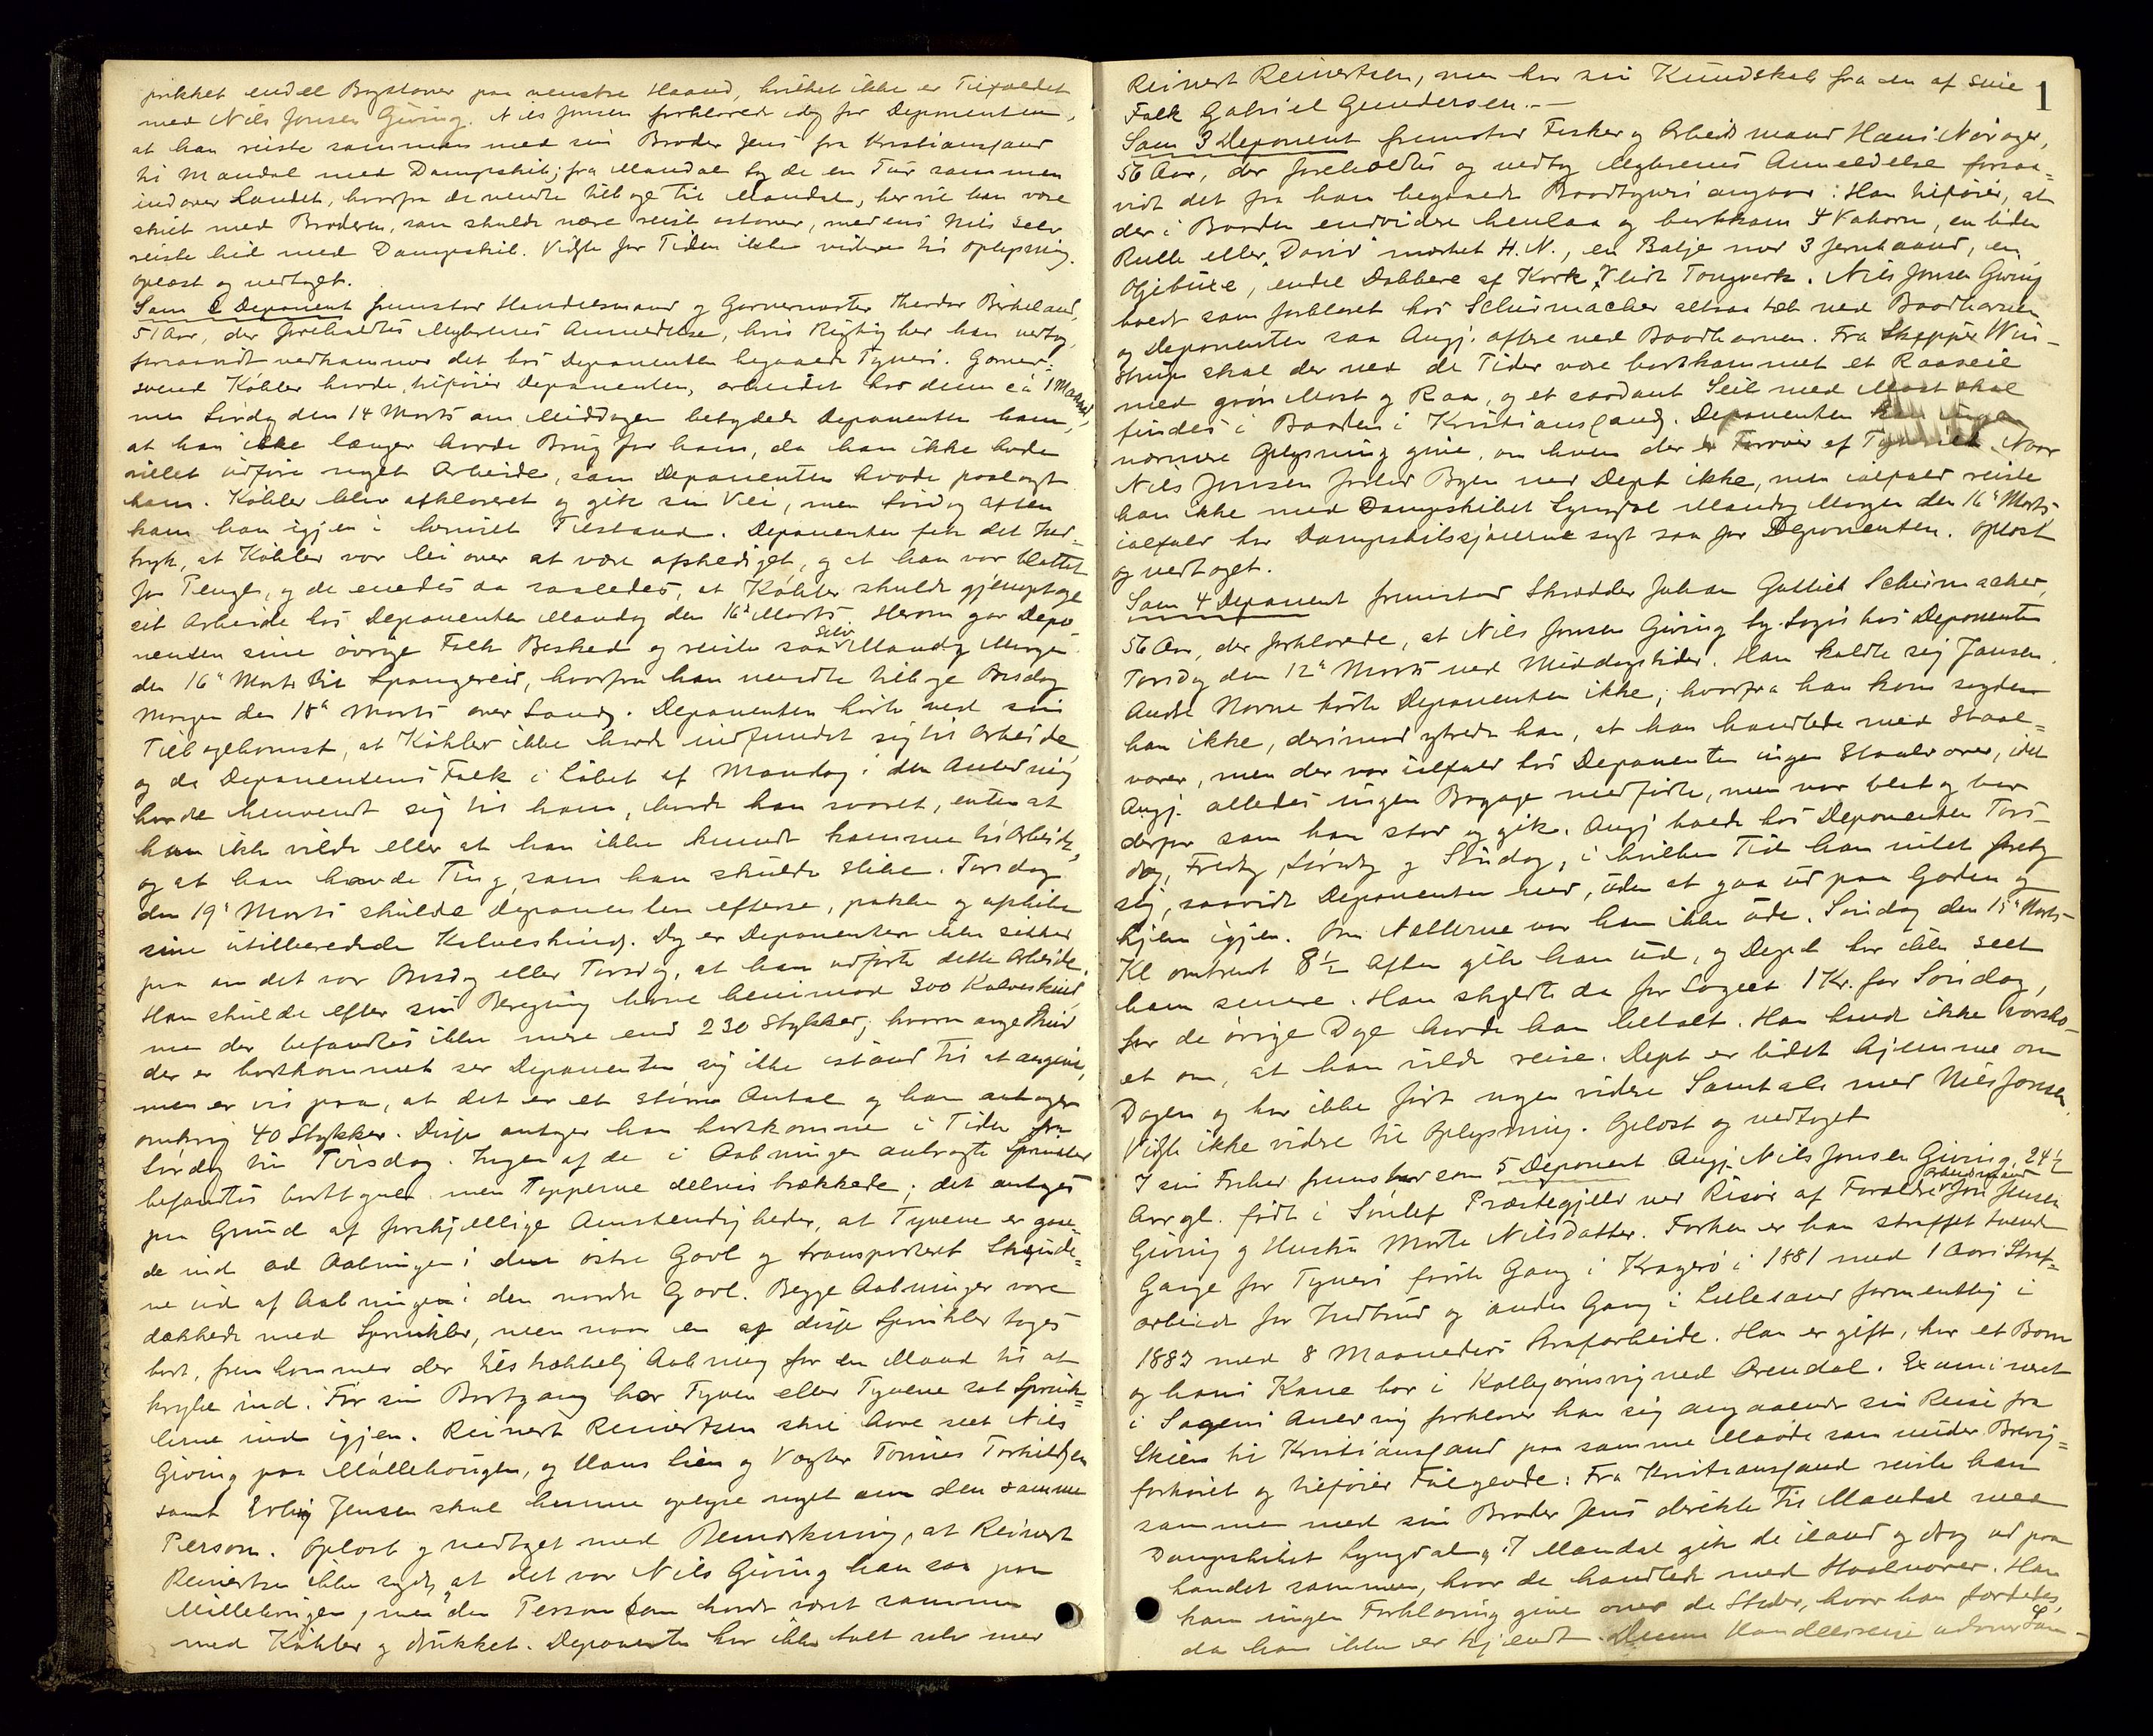 prikket endel Bogstaver paa venstre Haand, hvilket ikke er Tilfældet
med Nils Jonsen Giving. Nils Jonsen forklarede idag for Deponenten,
at han reiste sammen med sin Broder Jens fra Kristianssand
til Mandal med Dampskib; fra Mandal tog de en Tur sammen
indover Landet, hvorfra de vendte tilbage til Mandal, her vil han være
skilt med Broderen, som skulde være reist østover, medens Nils selv
reiste hid med Dampskib. Vidste for Tiden ikke videre til Oplysning.
Oplæst og vedtaget.
Som 2 Deponent fremstod Handelsmand og Garvermester Theodor Birkeland,
51 Aar, der foreholdtes Anmeldelse, hvis Rigtighed han vedtog,
forsaavidt vedkommer det hos Deponenten begaaede Tyveri. Garver=
svend Köhler havde, tilføier Deponenten, arbeidet hos denne ca 1 Maaned,
men Lørdag den 14 Marts om Middagen betydede Deponenten ham,
at han ikke længer havde Brug for ham, da han ikke havde
villet udføre noget Arbeide, som Deponenten havde paalagt
ham. Köhler blev afklareret og gik sin Vei, men Søndag Aften
kom han igjen i beruset Tilstand. Deponenten fik det Ind-
tryk, at Köhler var lei over at være afskediget, og at han var blottet
for Penge, og de enedes da saaledes, at Köhler skulde gjenoptage
sit Arbeide hos Deponenten Mandag den 16de Marts. Herom gav Depo-
nenten sine øvrige Folk Besked og reiste saa selv Mandag Morgen
den 16de Marts til Spangereid, hvorfra han vendte tilbage Onsdag
Morgen den 18de Marts over Land. Deponenten hørte ved sin
Tilbagekomst, at Köhler ikke havde indfundet sig til Arbeide,
og da Deponentens Folk i Løbet af Mandag i den Anledning
havde henvendt sig til ham, havde han svaret, enten at
han ikke vilde eller at han ikke kunde komme til Arbeide,
og at han havde Ting, som han skulde slibe. Torsdag
den 19de Marts skulde Deponenten efterse, pakke og afskibe
sine utilberedede Kalveskind. Dog er Deponenten ikke sikker
paa om det var Onsdag eller Torsdag, at han udførte dette Arbeide.
Han skulde efter sin Beregning have henimod 300 Kalveskind,
men der befandtes ikke mere end 230 Stykker; hvormange Skind
der er bortkommet ser Deponenten sig ikke istand til at angive,
men er vis paa, at det er et større Antal og han antager
omkring 40 Stykker. Disse antager han bortkomne i Tiden fra
Lørdag til Tirsdag. Ingen af de i Aabningen anbragte Sprinkler
befandtes men Topperne delvis brækkede; det antages
paa Grund af forskjellige Omstændigheder, at Tyvene er gaae-
de ind ad Aabningen i den østre Gavl og transporteret Skinde=
ne ud af Aabningen i den nordre Gavl. Begge Aabninger vare
dækkede med Sprinkler, men naar en af disse Sprinkler tages
bort, fremkommer der tilstrækkelig Aabning for en Mand til at
krybe ind. Før sin Bortgang har Tyven eller Tyvene sat Sprink=
lerne ind igjen. Reinert Reinertsen skal have seet Nils
Giving paa Møllehougen, og Hans Lien og Vægter Tønnes Torkildsen
samt Erling Jensen skal kunne oplyse noget om den samme
Person. Oplæst og vedtaget med Bemærkning, at Reinert
Reinertsen ikke sagde, at det var Nils Giving han saa paa
Møllehougen, men den Person som havde været sammen
med Köhler og drukket. Deponenten har ikke talt selv med
1
Reinert Reinertsen, men har sin Kundskab fra en af sine
Folk Gabriel Gundersen. —
Som 3 Deponent fremstod Fisker og Arbeidsmand Hans Norager,
56 Aar, der foreholdtes og vedtog Anmeldelse forsaa=
vidt det fra ham begaaede Baadtyveri angaar. Han tilføier, at
der i Baaden endvidere henlaa og bortkom 4 Vaborn, en liden
Rulle eller "David" mærket H. N., en Balje med 3 Jernbaand, en
Oljebuxe, endel Dobbere af Kork, & lidt Tougværk. Nils Jonsen Giving
boede som forklaret hos Schirmacher altsaa tæt ved Baadhavnen
og Deponenten saa Angj. oftere ved Baadhavnen. Fra Skipper Win-
strup skal der ved de Tider være bortkommet et Raaseil
med grøn Mast og Raa, og et saadant Seil med Mast skal
findes i Baaden i Kristianssand. Deponenten kan ingen
nærmere Oplysning give, om hvem der er Tyveriet. Naar
Nils Jonsen forlod Byen ved Dept ikke, men ialfald reiste
han ikke med Dampskibet Lyngdal Mandag Morgen den 16de Marts
ialfald har Dampskibs sagt saa for Deponenten. Oplæst
og vedtaget.
Som 4 Deponent fremstod Skrædder Johan Gottlieb Schirmacher,
56 Aar, der forklarede, at Nils Jonsen Giving tog Logis hos Deponenten
Torsdag den 12te Marts ved Middagstider. Han kaldte sig Jansen.
Andre Navne hørte Deponenten ikke; hvorfra han kom sagde
han ikke, derimod ytrede han, at han handlede med Staal=
varer, men der var ialfald hos Deponenten ingen Staalvarer, idet
Angj. aldeles ingen Bagage medførte, men var blot og bar
derpaa som han stod og gik. Angj boede hos Deponenten Tors-
dag, Fredag, Lørdag og Søndag, i hvilken Tid han intet foretog
sig, saavidt Deponenten ved, uden at gaa ud paa Gaden og
hjem igjen. Om Nætterne var han ikke ude. Søndag den 15de Marts
Kl omtrent 8½ Aften gik han ud, og Dept har ikke seet
ham senere. Han skyldte da for Logiet 1 Kr. for Søndag,
for de øvrige Dage havde han betalt. Han havde ikke varsko-
et om, at han vilde reise. Dept er lidet hjemme om
Dagen og har ikke ført nogen videre Samtale med Nils Jonsen.
Vidste ikke videre til Oplysning. Oplæst og vedtaget
I sin Frihed fremstod som 5 Deponent Angj. Nils Jonsen Giving, 24½
Aar gl. født i Søndeled Præstegjeld ved Risør af Forældre Jon Jensen
Giving og Hustru Marte Nilsdatter. Forhen er han straffet tvende
Gange for Tyveri første Gang i Kragerø i 1881 med 1 Aars Straf=
arbeide for Indbrud og anden Gang i Lillesand formentlig i
1883 med 8 Maaneders Strafarbeide. Han er gift, har et Barn
og hans Kone bor i Kolbjørnsvig ved Arendal. Examineret
i Sagens Anledning forklarer han sig angaaende sin Reise fra
Skien til Kristianssand paa samme Maade som under Brevig=
forhøret og tilføier Følgende: Fra Kristianssand reiste han
sammen med sin Broder Jens direkte til Mandal med
Dampskibet Lyngdal. I Mandal gik de iland og drog ud paa
Landet sammen, hvor de handlede med Staalvarer. Han
kan ingen Forklaring give over de Steder, hvor han færdedes,
da han ikke er kjendt. Denne Handelsreise